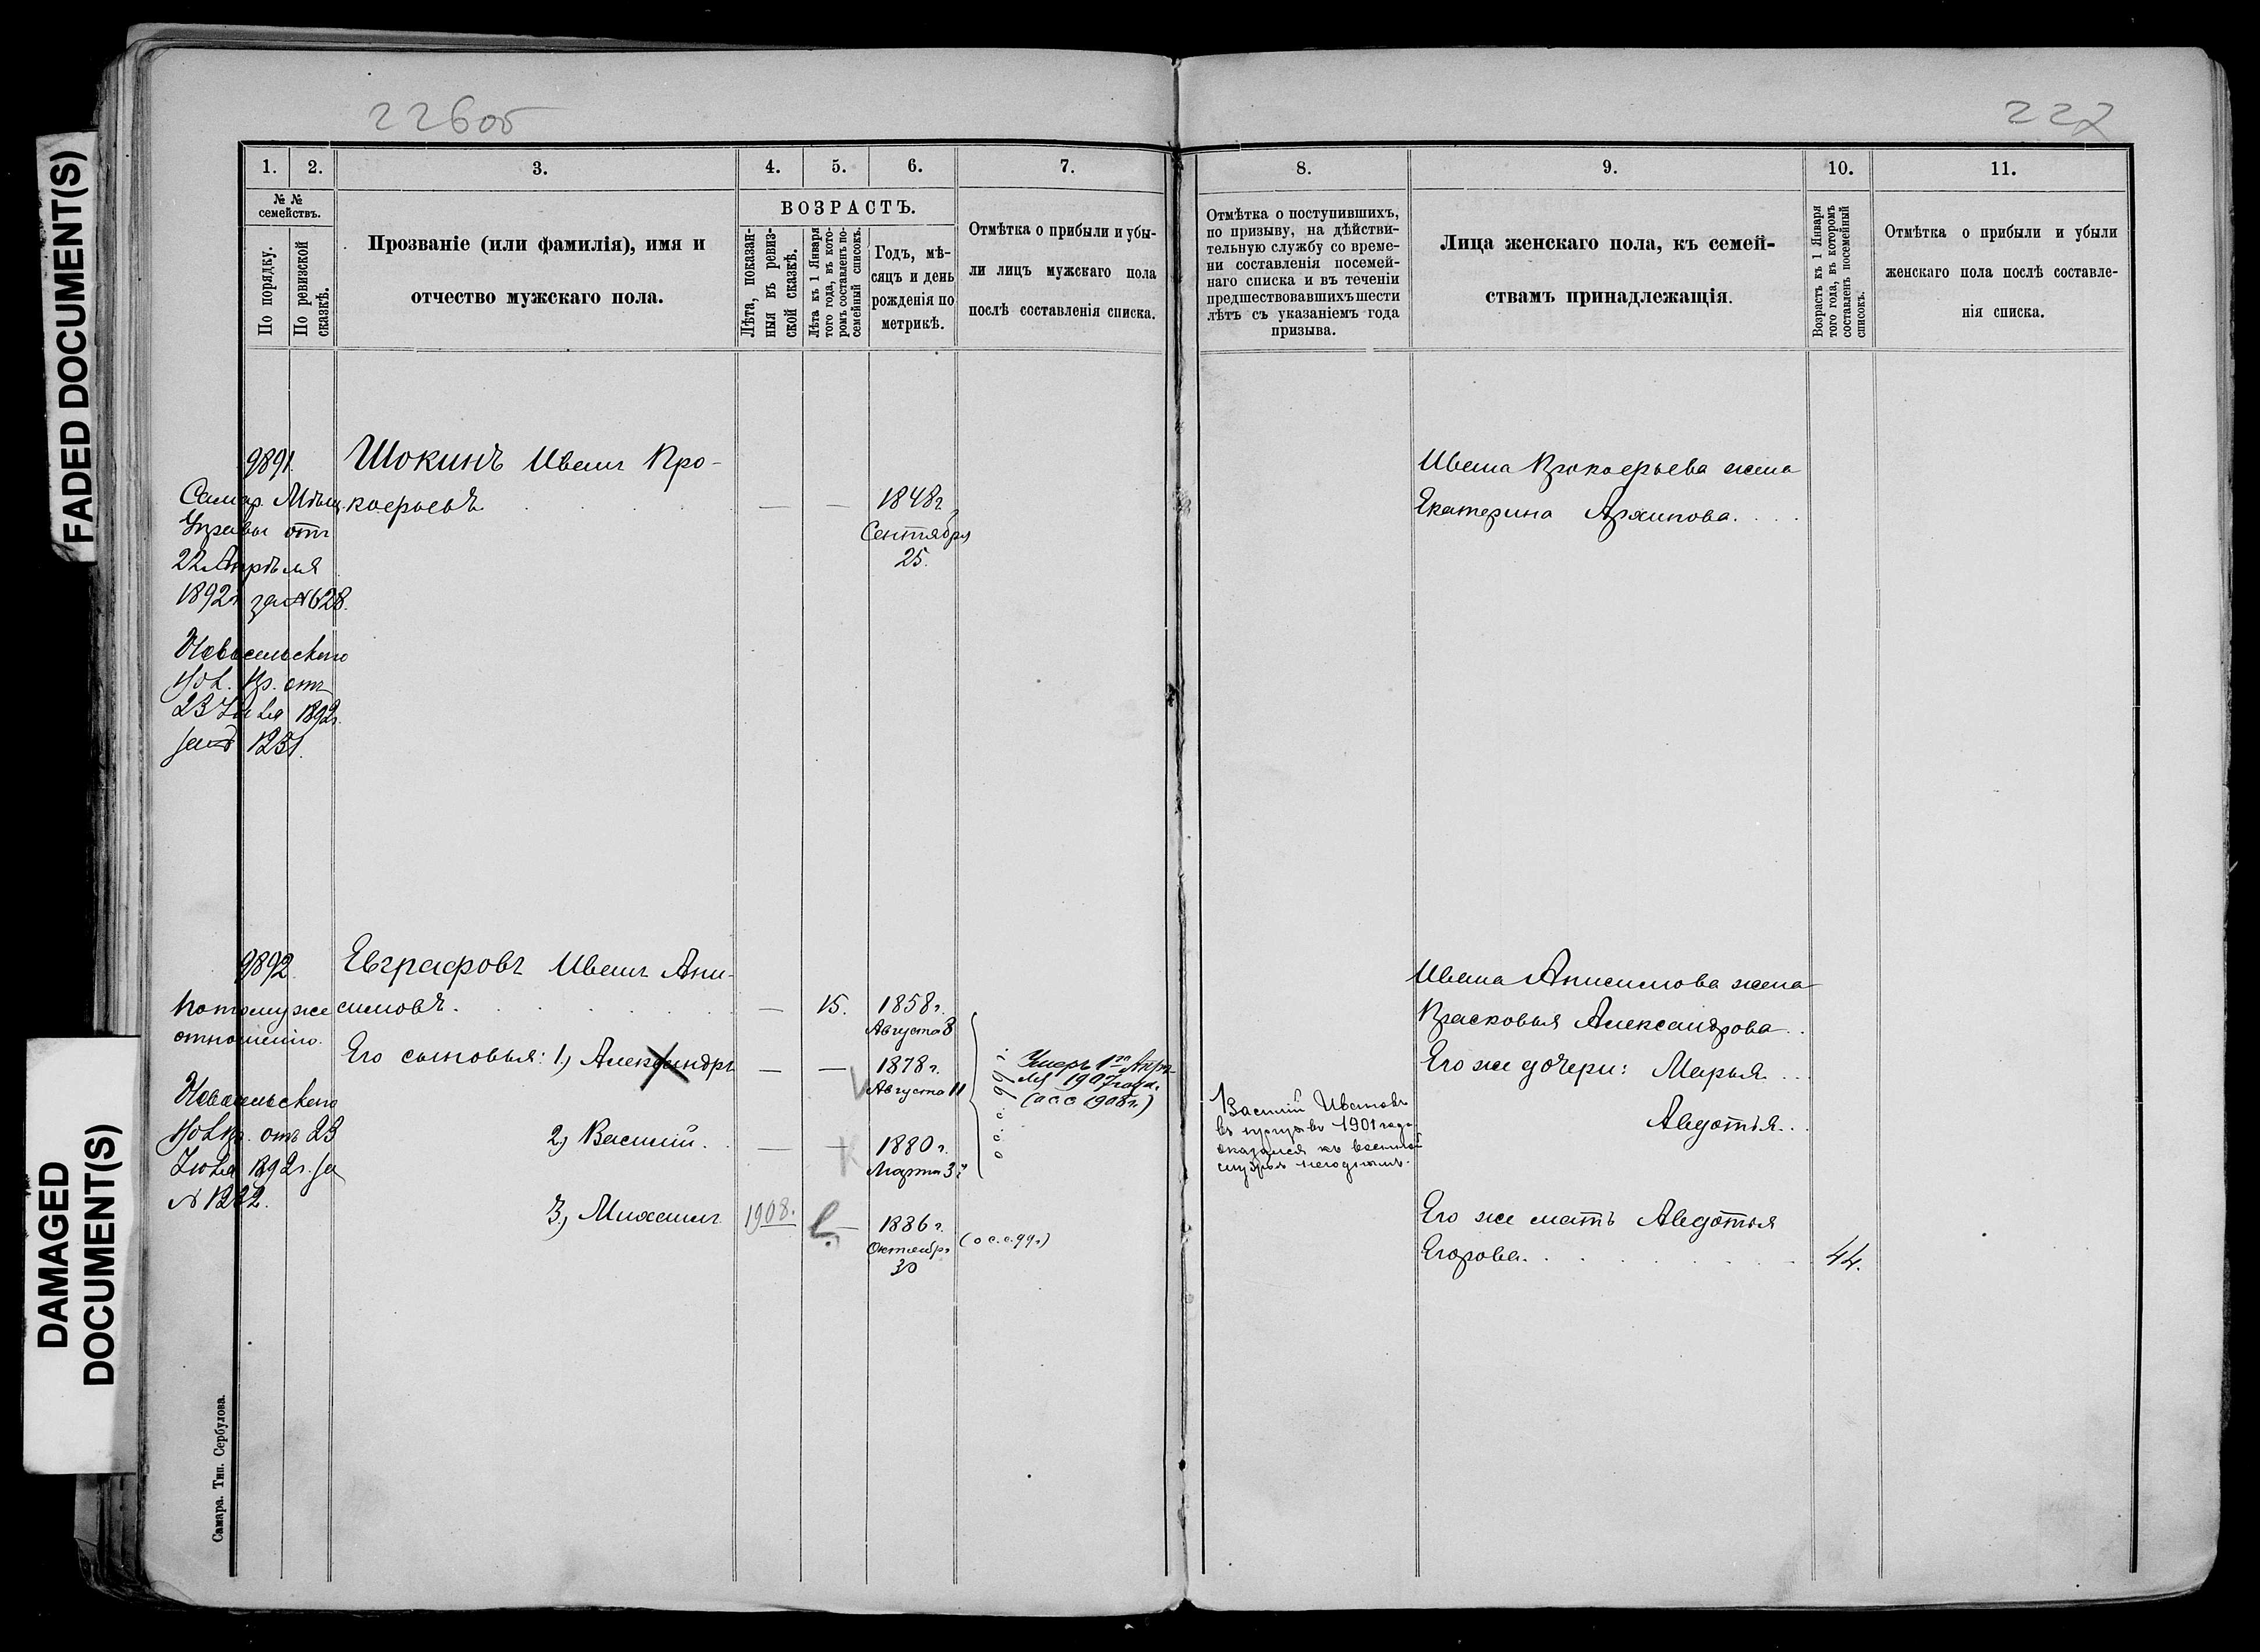 FADED DOCUMENT(S)
DAMAGED
DOCUMENT(S)
226об
1. 2. 3. 4. 5. 6. 7.
№ №
семействъ.
По порядку.
По ревизской
сказкѣ.
Прозваніе (или фамилія), имя и
отчество мужскаго пола.
ВОЗРАСТЪ.
Лѣта, показан-
ныя въ ревиз-
ской сказкѣ.
Лѣта къ 1 Января
того года, въ кото-
ромъ составленъ по-
семейный списокъ.
Годъ, мѣ-
сяцъ и день
рожденія по
метрикѣ.
Отмѣтка о прибыли и убы-
ли лицъ мужскаго пола
послѣ составленія списка.
9891.
Самар. Мѣщ.
Управы отъ
22 Апрѣля
1892г. за № 628.
Новосельскаго
Вол. Пр. отъ
23 Іюля 1892г.
за № 1231.
Шокинъ Иванъ Про-
кофьевъ
1848г.
Сентября
25.
9892.
По тому же
отношенію.
Новосельскаго
Вол. Пр. отъ 23
Іюля 1892г. за
№ 1232.
Евграфовъ Иванъ Ани-
симовъ.
15.
1858г.
Августа 8
Его сыновья: 1) Александръ
1878г.
Августа 11
о с. с. 99 г.
Умеръ 1го Апрѣ-
ля 1907 года.
(о с с 1908 г.)
2) Василій.
1880г.
Марта 3
3) Михаилъ
1908.
1886г.
Октября
30
(о с. с. 99г)
Самара. Тип. Сербулова.
227
8. 9. 10. 11.
Отмѣтка о поступившихъ,
по призыву, на дѣйстви-
тельную службу со време-
ни составленія посемей-
наго списка и въ теченіи
предшествовавшихъ шести
лѣтъ съ указаніемъ года
призыва.
Лица женскаго пола, къ семей-
ствамъ принадлежащія.
Возрастъ къ 1 Января
того года, въ которомъ
составленъ посемейный
списокъ.
Отмѣтка о прибыли и убыли
женскаго пола послѣ составле-
нія списка.
Ивана Прокофьева жена
Екатерина Архипова.
Василій Ивановъ
въ призывѣ 1901 года
оказался къ военной
службѣ негоднымъ.
Ивана Анисимова жена
Прасковья Александрова.
Его же дочери: Марья
Авдотья.
Его же мать Авдотья
Егорова.
44.